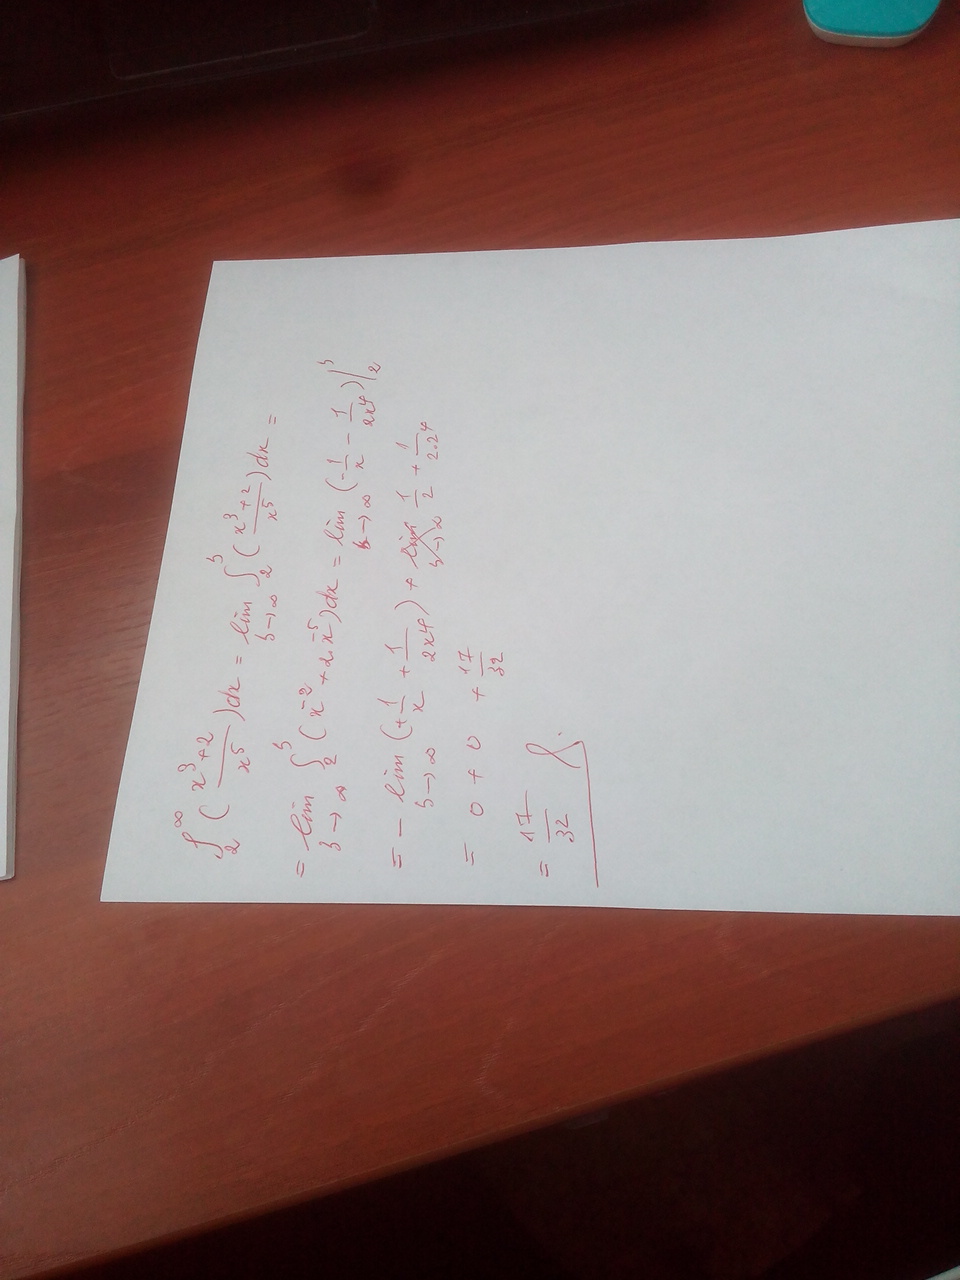 ∫₂^∞ (x³+2 / x⁵) dx = lim b→∞ ∫₂^b (x³+2 / x⁵) dx =
= lim b→∞ ∫₂^b (x⁻² + 2·x⁻⁵) dx = lim b→∞ (-1/x - 1/2x⁴)|₂^b
= - lim b→∞ (+1/x + 1/2x⁴) + lim b→∞ 1/2 + 1/2·2⁴
= 0 + 0 + 17/32
= 17/32